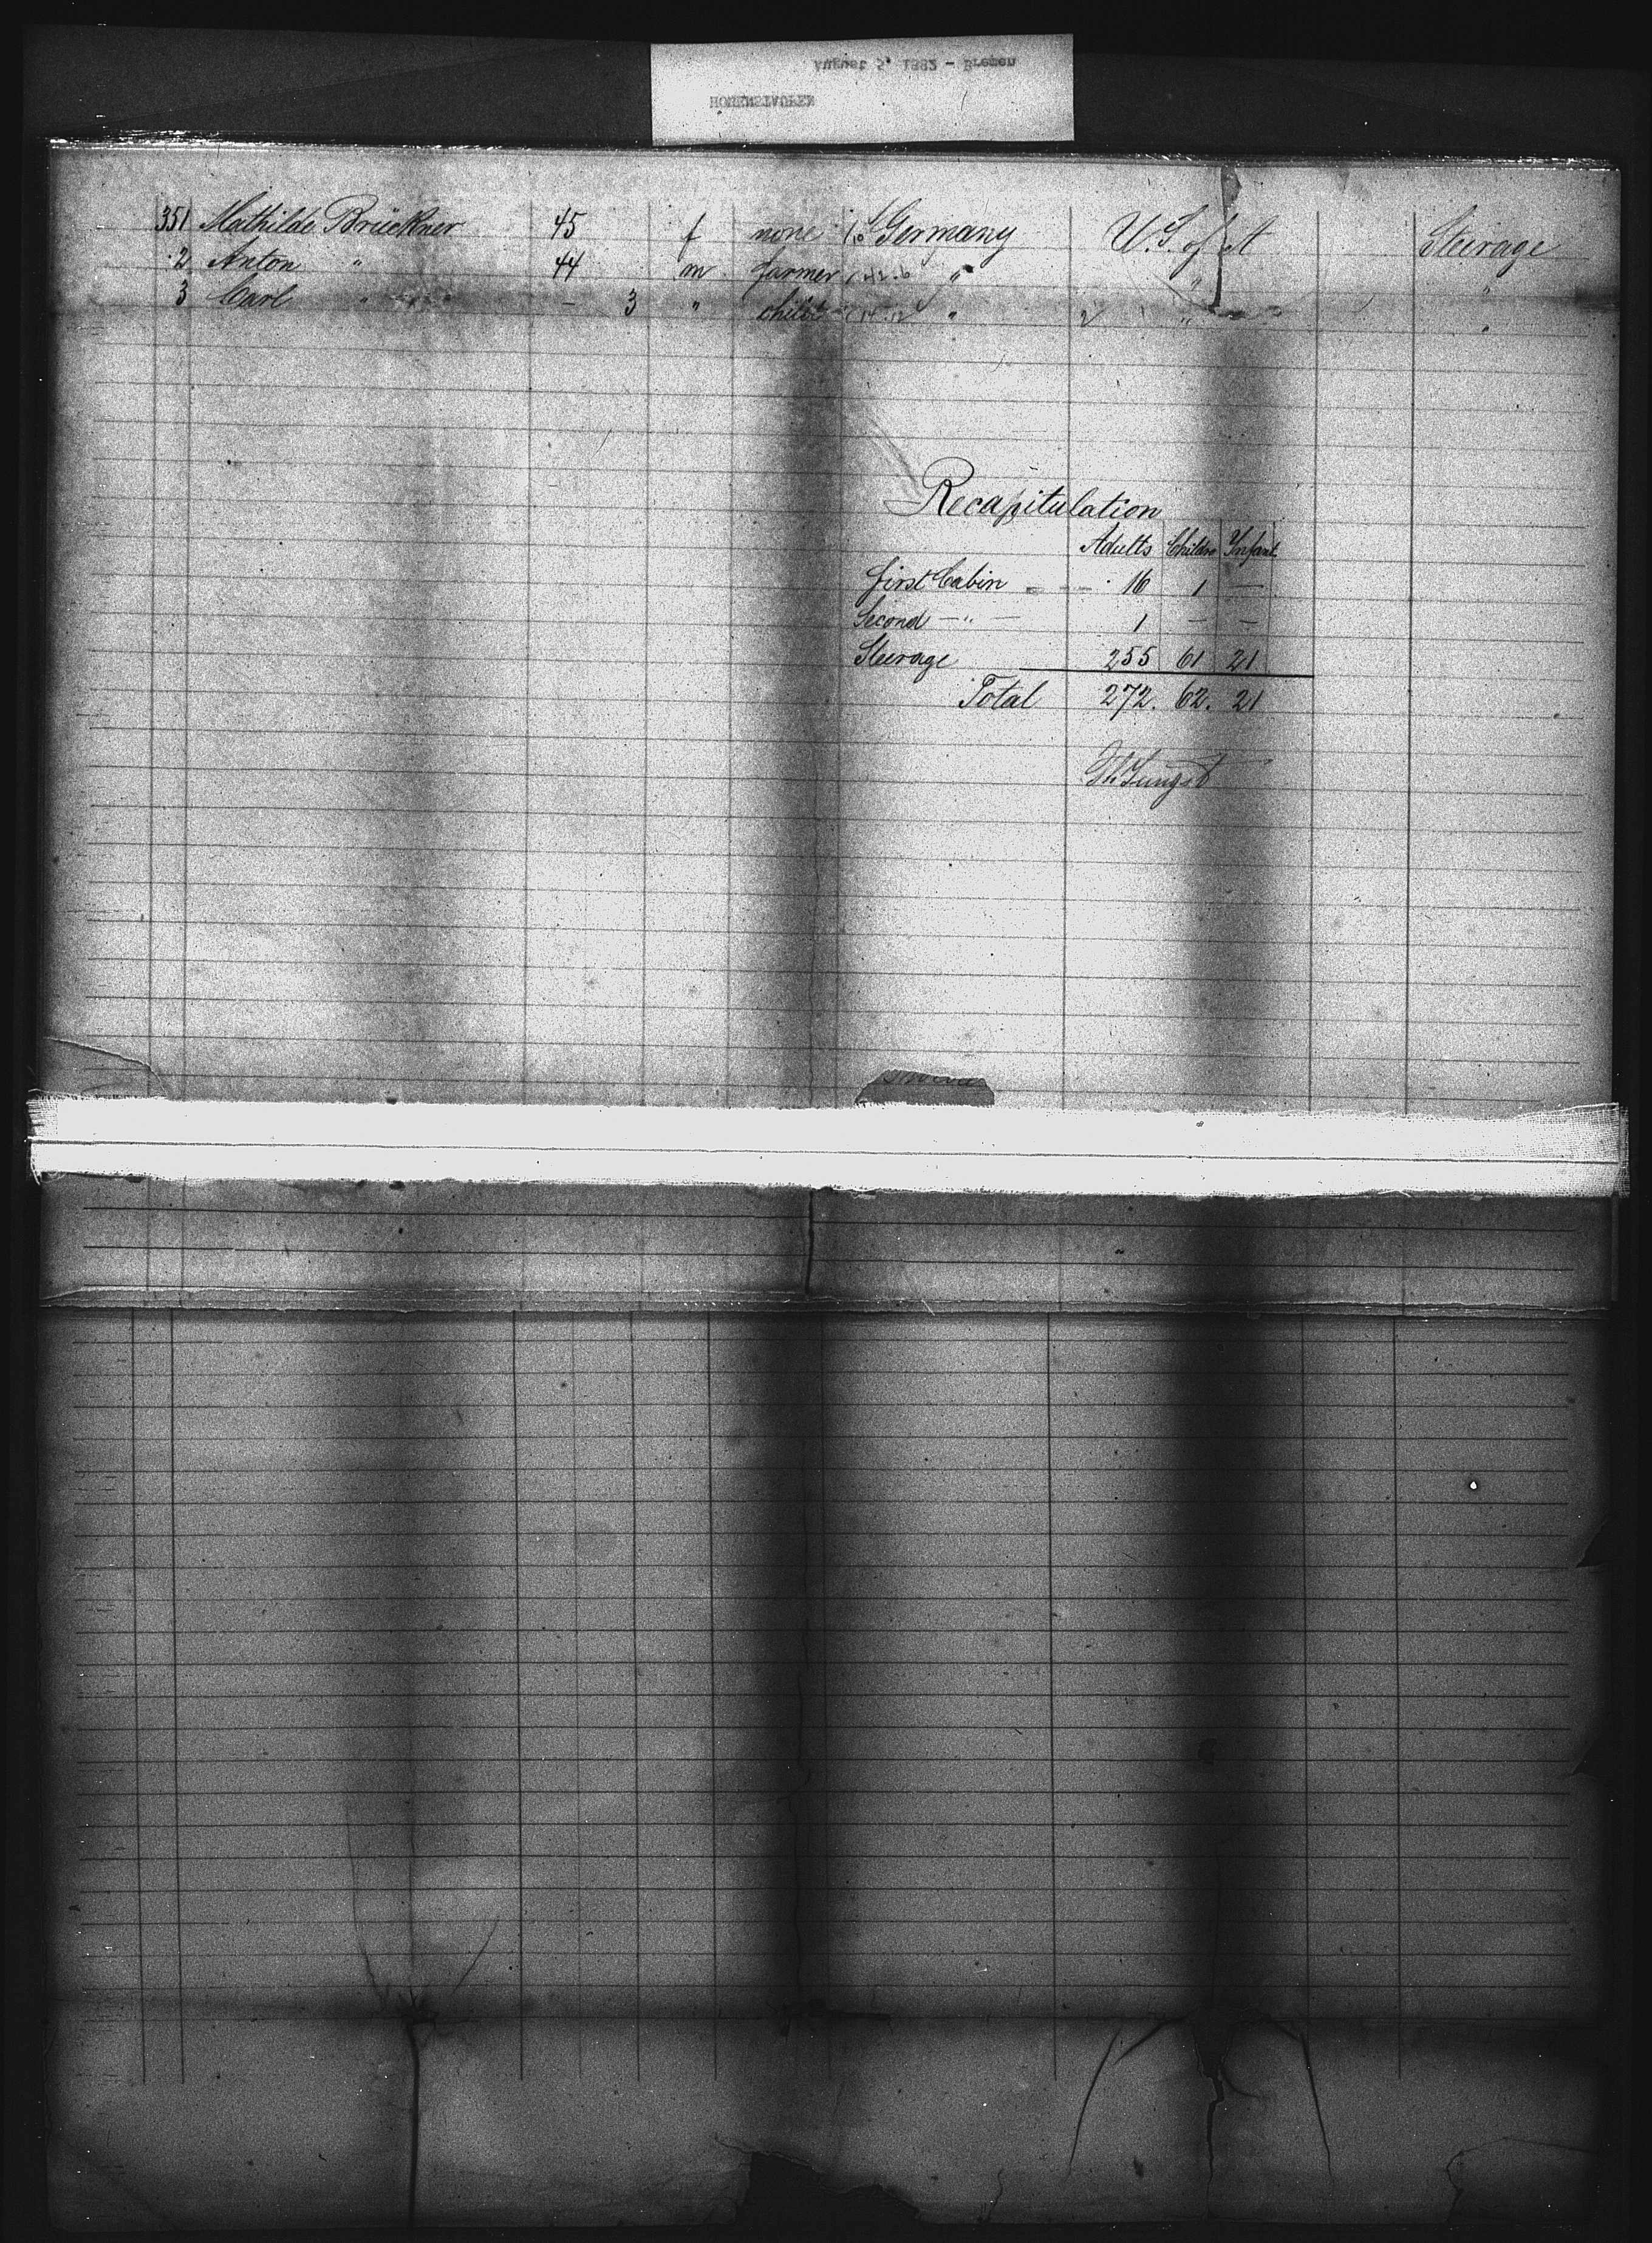 August 5, 1882 - Bremen
HOHENSTAUFEN
351 Mathilde Brückner 45 f none Germany U.S. of A Steerage
2 Anton " 44 m farmer " " "
3 Carl " - 3 " child " " "
Recapitulation
Adults Childrn Infant
first Cabin 16 1 —
Second — " — 1 — —
Steerage 255 61 21
Total 272. 62. 21